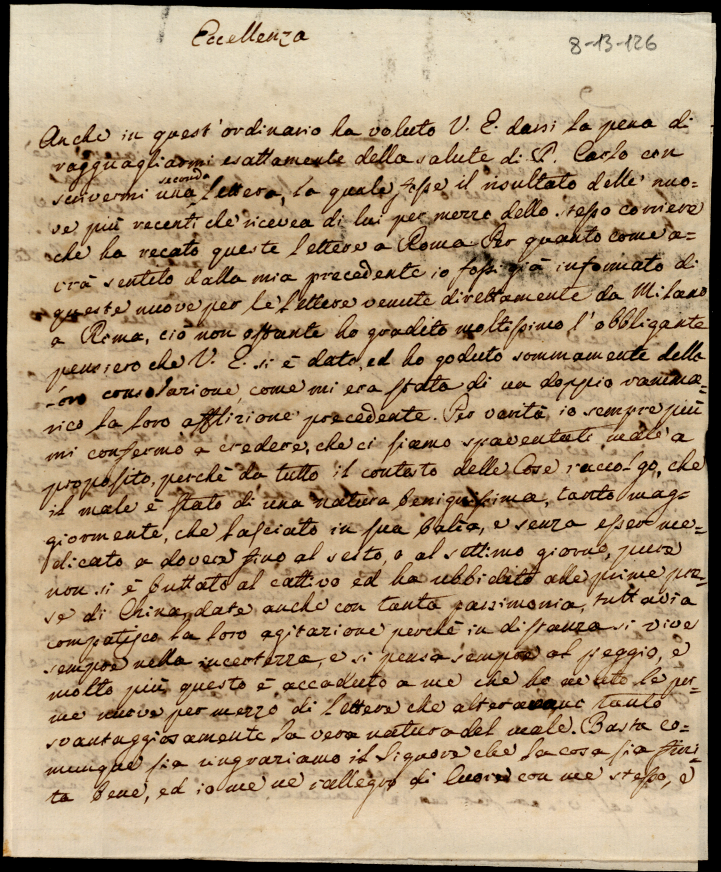 Eccellenza
8-13-126
Anche in quest'ordinario ha voluto V. E. darsi la pena di
ragguagliarmi esattamente della salute di D. Carlo con
seconda
scrivermi una lettera, la quale fosse il risultato delle nuo=
ve più recenti che ricevea di lui per mezzo dello stesso corriere
che ha recato queste lettere a Roma. Per quanto come a=
vrà sentito dalla mia precedente io fossi già informato di
queste nuove per le lettere venute direttamente da Milano
a Roma, ciò non ostante ho gradito moltissimo l'obbligante
pensiero che V. E. si è dato, ed ho goduto sommamente della
loro consolazione, come mi era stata di un doppio ramma=
rico la loro afflizione precedente. Per verità io sempre più
mi confermo a credere, che ci siamo spaventati male a
proposito, perchè da tutto il contesto delle cose raccolgo, che
il male è stato di una natura benignissima, tanto mag=
giormente, che lasciato in sua balìa, e senza esser me=
dicato a dovere fino al sesto, o al settimo giorno, pure
non si è buttato al cattivo ed ha ubbidito alle prime pre=
se di China, date anche con tanta parsimonia, tuttavia
compatisco la loro agitazione perchè in distanza si vive
sempre nella incertezza, e si pensa sempre al peggio, e
molto più questo è accaduto a me che ho avuto le pri=
me nuove per mezzo di lettere che alteravano tanto
svantaggiosamente la vera natura del male. Basta co=
munque sia ringraziamo il Signore che la cosa sia fini=
ta bene, ed io me ne rallegro di cuore con me stesso, e